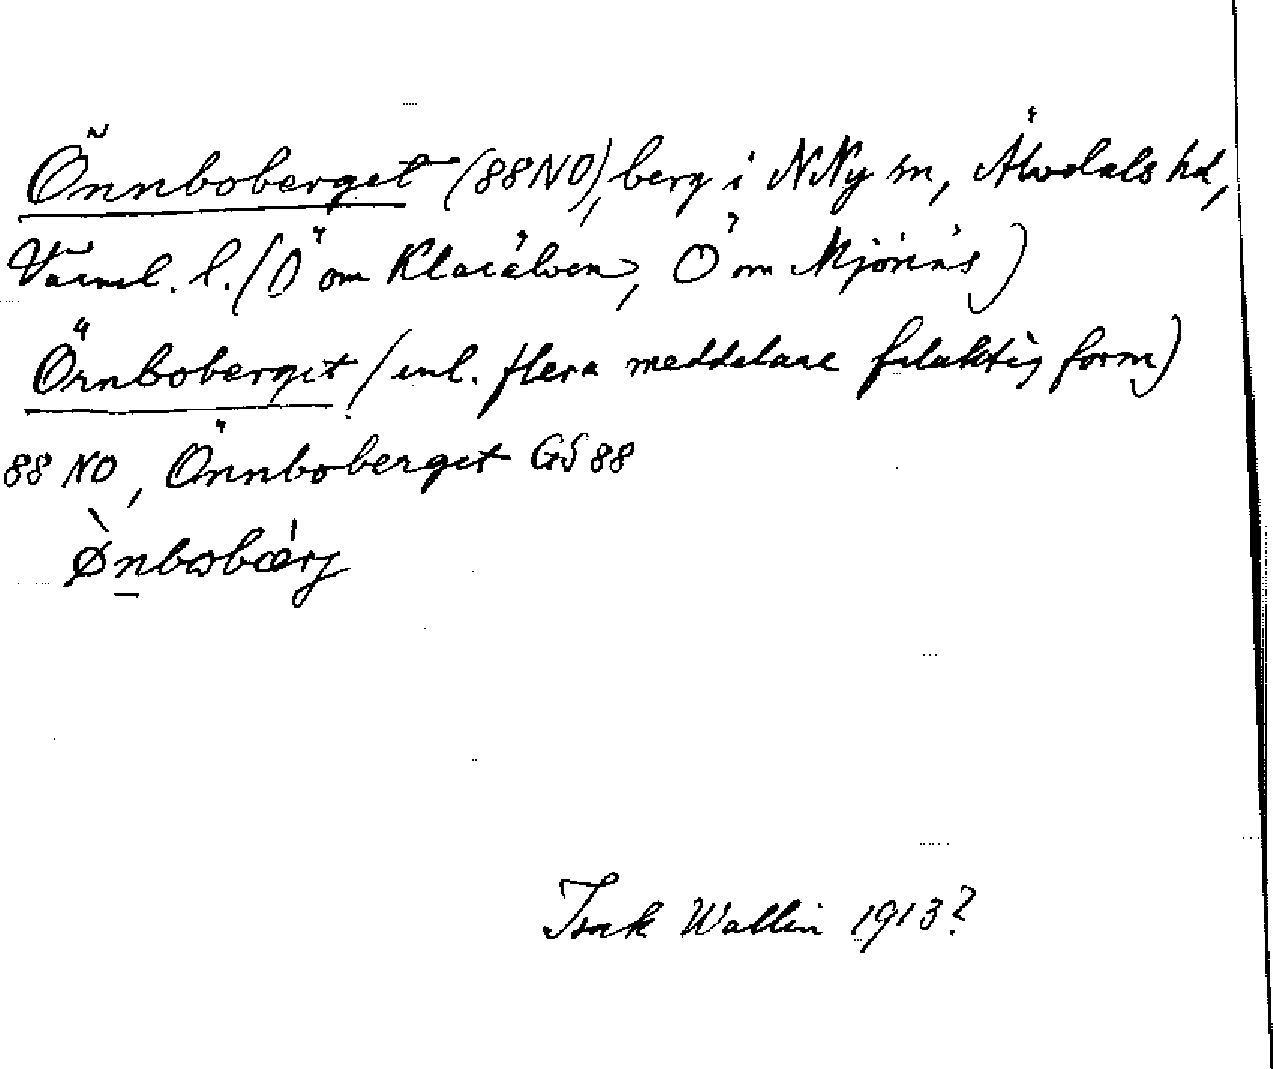 Önnboberget (88NO), berg i NNy sn, Älvdals hd,
Värml. l. (Ö om Klarälven, Ö om Mjönäs)
Örnboberget (enl. flera meddelare felaktig form)
88 NO, Önnboberget GS 88
Ø̀nbωbǽrj
Isak Wallin 1913?